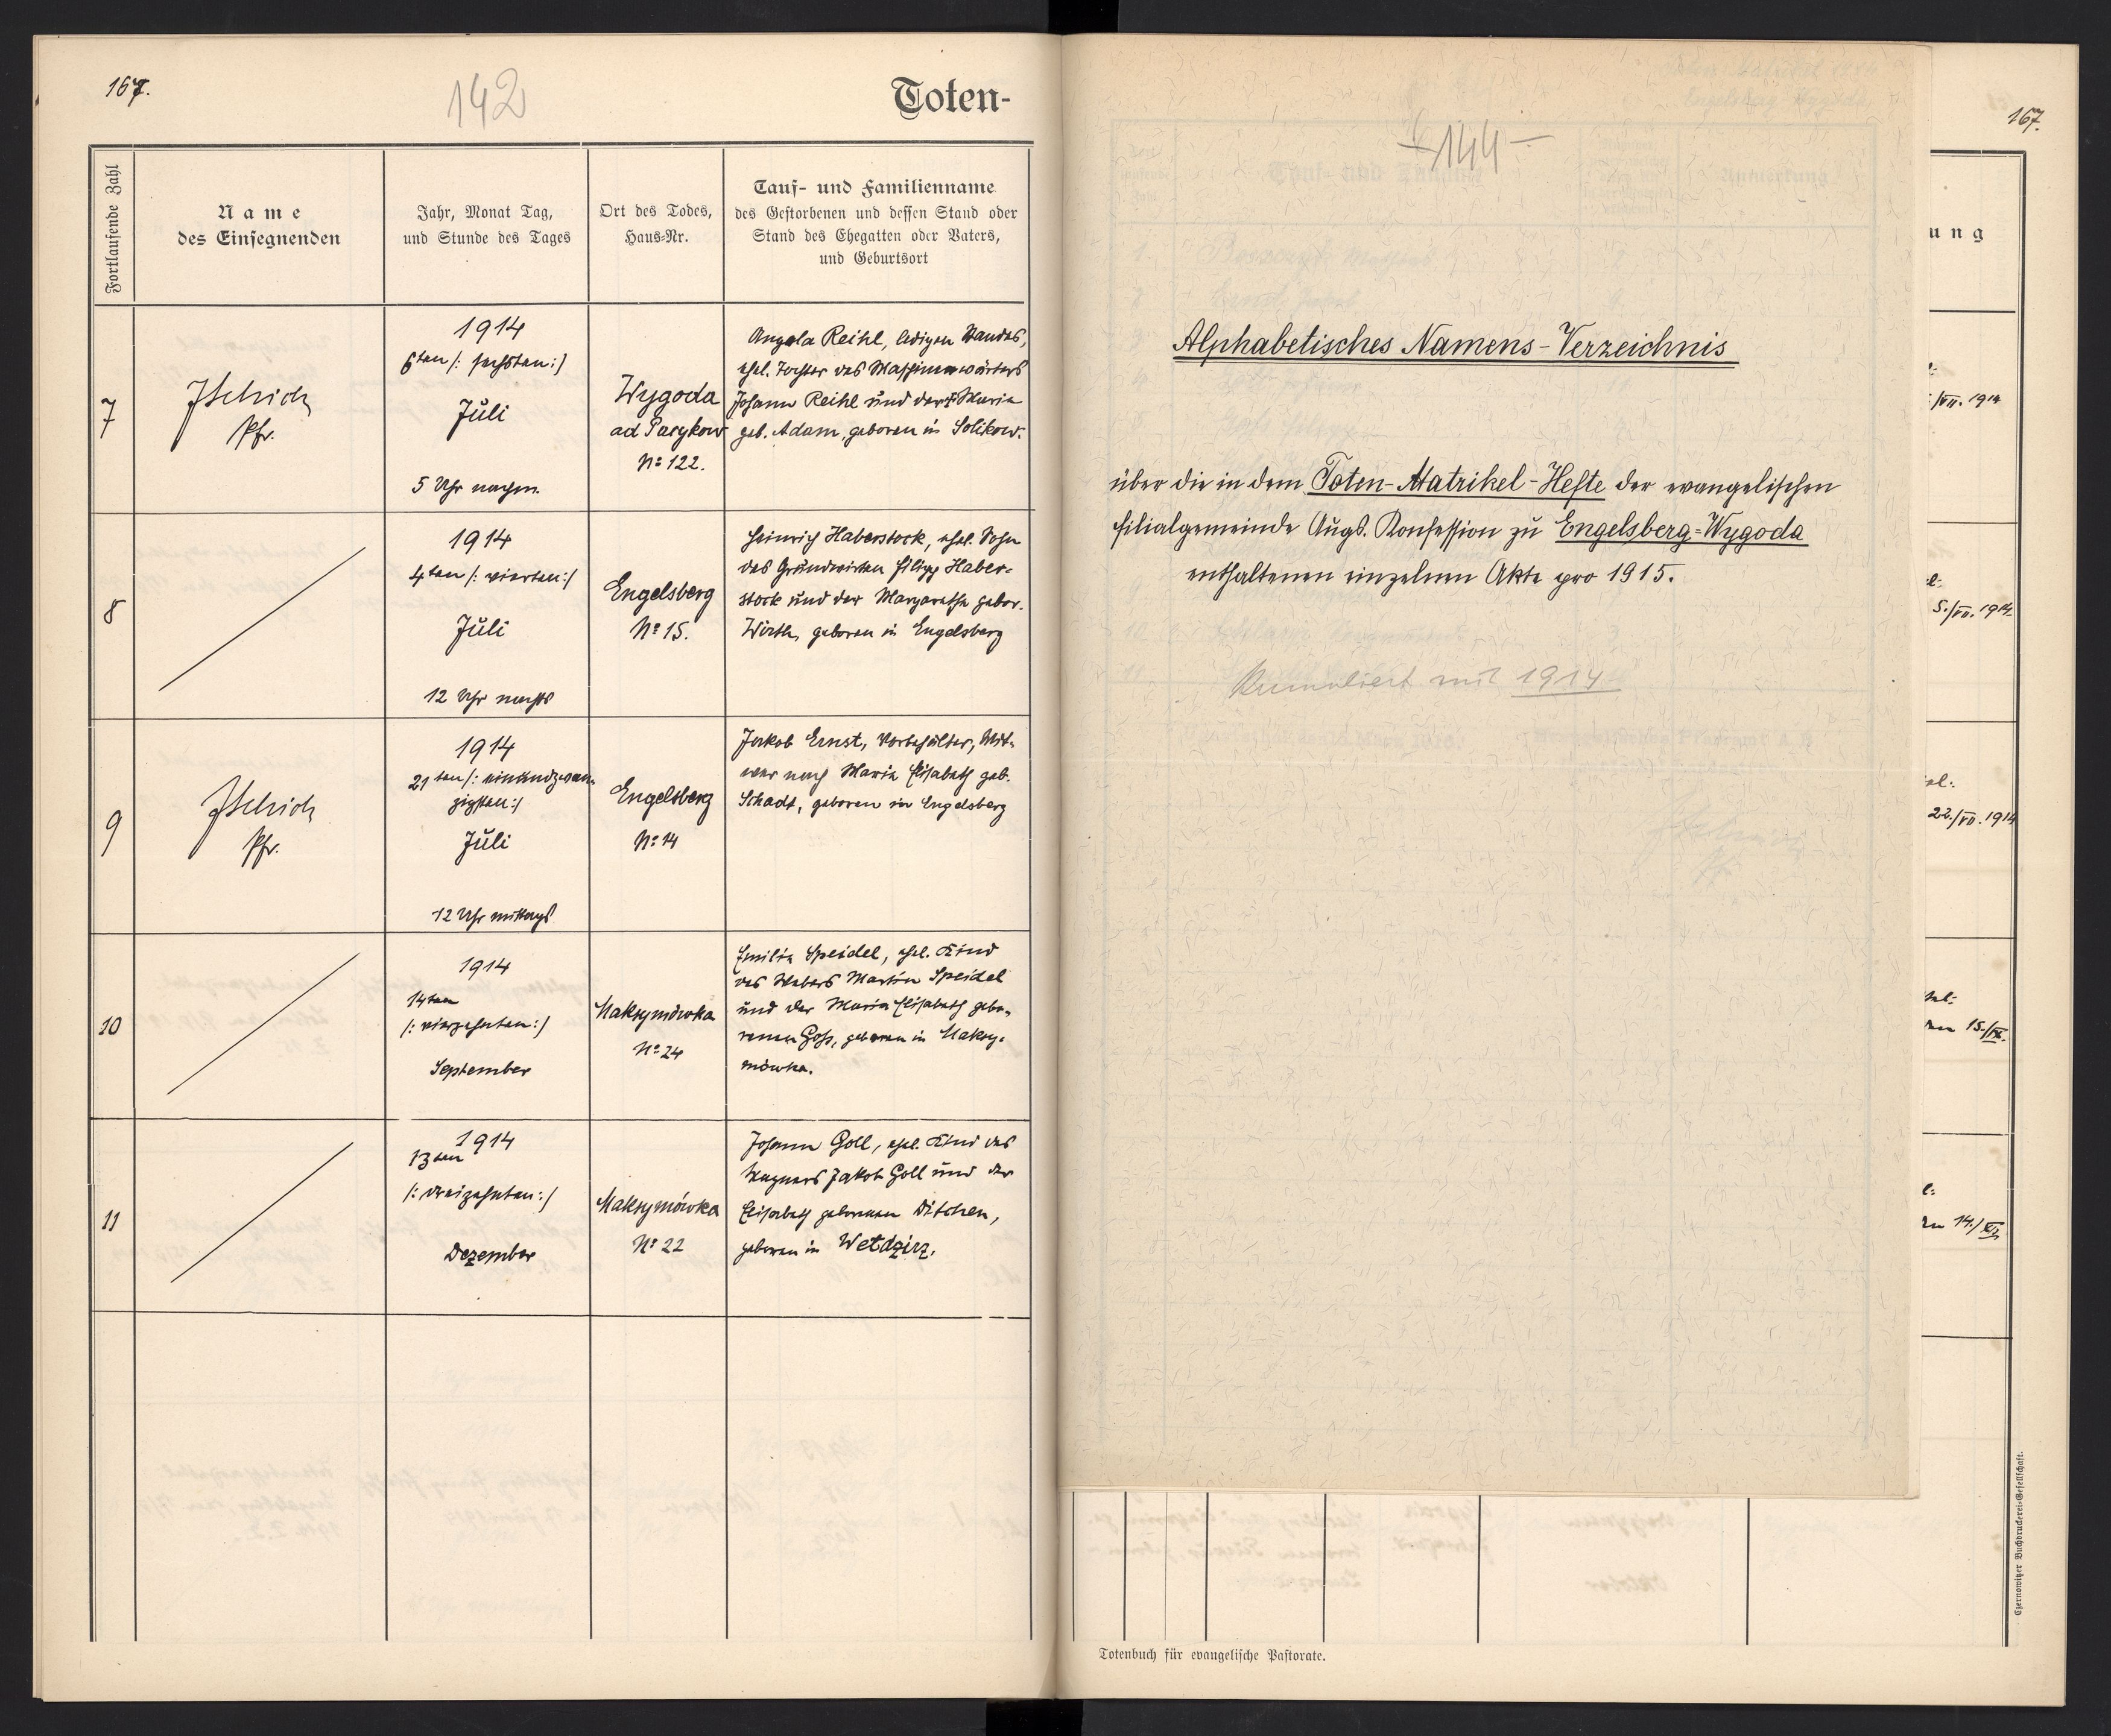 167.
142
Toten-
Fortlaufende Zahl
Name
des Einsegnenden
Jahr, Monat Tag,
und Stunde des Tages
Ort des Todes,
Haus-Nr.
Tauf- und Familienname
des Gestorbenen und dessen Stand oder
Stand des Ehegatten oder Vaters,
und Geburtsort
7
Pfr.
1914
6ten /: sechsten :/
Juli
5 Uhr nachm.
Wygoda
ad Pasykow
No 122.
Angela Reihl, ledigen Standes,
ehel. Tochter des Maschinenwärters
Johann Reihl und der Maria
geb. Adam, geboren in Solikow.
8
1914
4ten /: vierten :/
Juli
12 Uhr nachts
Engelsberg
No 15.
Heinrich Haberstock, ehel. Sohn
des Grundwirten Filipp Haber-
stock und der Margaretha gebor.
Wirth, geboren in Engelsberg
9
Pfr.
1914
21ten /: einundzwan-
zigsten :/
Juli
12 Uhr mittags
Engelsberg
No 14
Jakob Ernst, Vorbehälter, Wit-
wer nach Maria Elisabeth geb.
Schadt, geboren in Engelsberg
10
1914
14ten
/: vierzehnten :/
September
Maksymówka
No 24
Emilia Speidel, ehel. Kind
des Webers Martin Speidel
und der Maria Elisabeth gebo-
renen Goß, geboren in Maksy-
mówka.
11
1914
13ten
/: dreizehnten :/
Dezember
Maksymówka
No 22
Johann Goll, ehel. Kind des
Wagners Jakob Goll und der
Elisabeth geborenen Ditchen,
geboren in Wetdzirz.
-144-
Alphabetisches Namens-Verzeichnis
über die in dem Toten-Matrikel-Hefte der evangelischen
Filialgemeinde Augs. Konfession zu Engelsberg-Wygoda
enthaltenen einzelnen Akte pro 1915.
Kumuliert mit 1914
167.
ung
/VII. 1914
5./VII. 1914
22./VII. 1914
15./IX.
14./XII.
Totenbuch für evangelische Pastorate.
Czernowitzer Buchdruckerei-Gesellschaft.